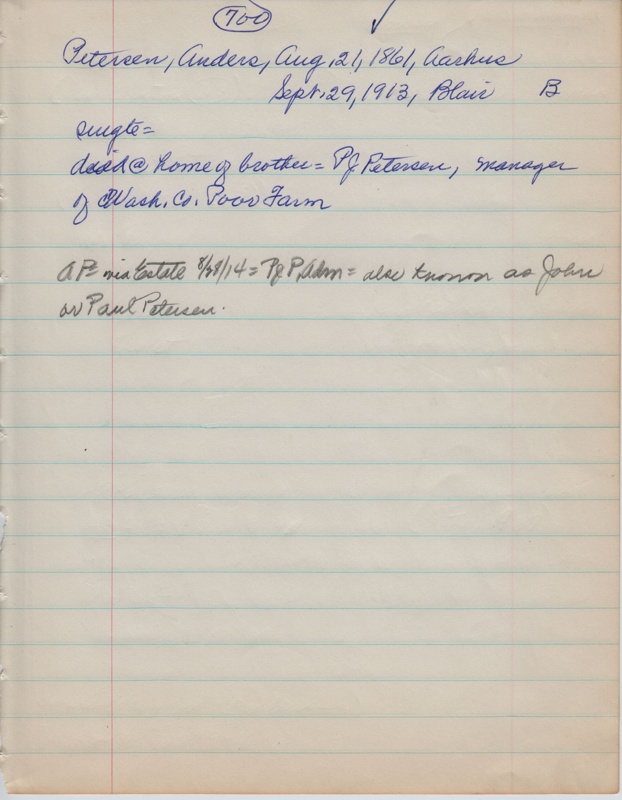 700
Petersen, Anders, Aug. 21, 1861, Aarhus
Sept. 29, 1913, Blair B
single =
died @ home of brother = PJ Petersen, manager
of Wash. Co. Poor Farm
AP = via Estate 8/28/14 = PJP, Adm = also known as John
or Paul Petersen.